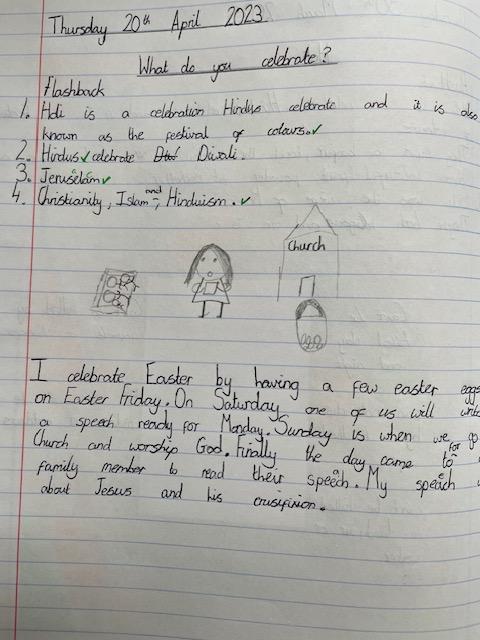 Thursday 20th April 2023
What do you celebrate?
Flashback
1. Holi is a celebration Hindus celebrate and it is also
known as the festival of colours.
2. Hindus celebrate Diwali.
3. Jeruselam
4. Christianity, Islam and Hinduism.
Church
I celebrate Easter by having a few easter eggs
on Easter Friday. On Saturday one of us will write
a speech ready for Monday. Sunday is when we go
Church and worship God. Finally the day came for to
family member to read their speach. My speach
about Jesus and his crusifixion.